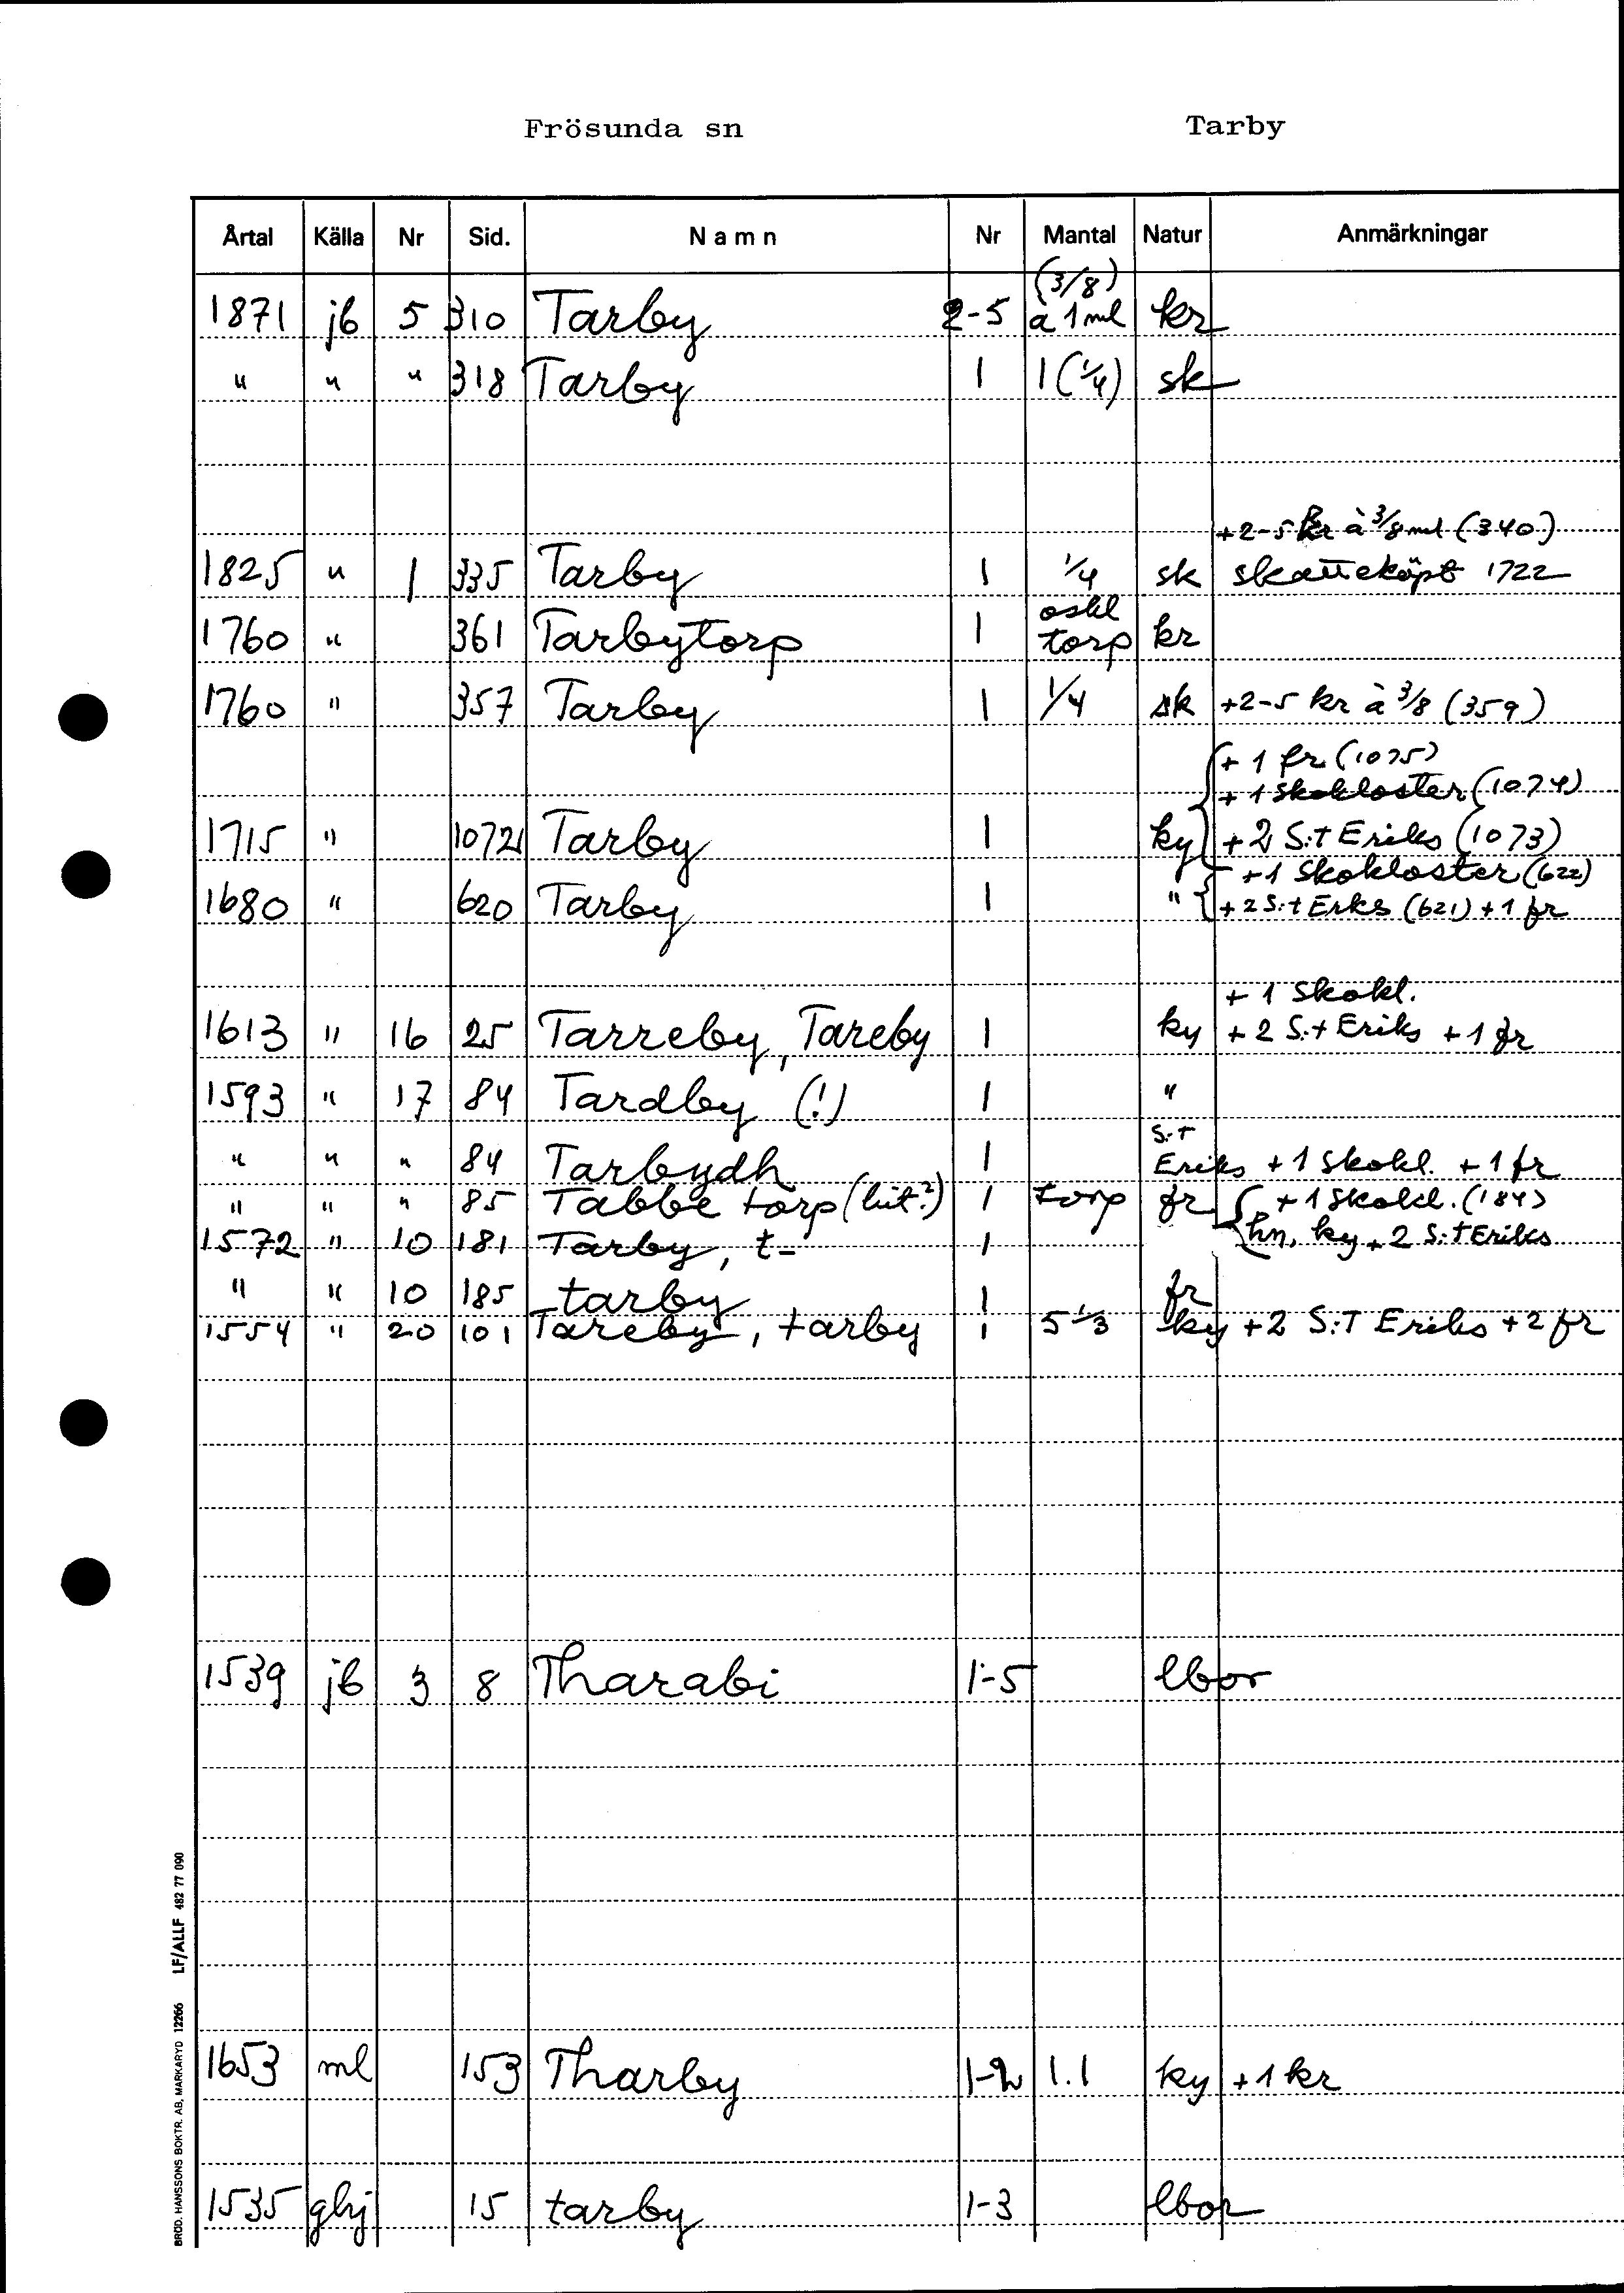 Frösunda sn Tarby
Årtal Källa Nr Sid. Namn Nr Mantal Natur Anmärkningar
(3/8)
1871 jb 5 310 Tarby 2-5 a 1 ml kr
" " " 318 Tarby 1 1 (1/4) sk
+2-5 kr à 3/8 ml (340)
1825 " 1 335 Tarby 1 1/4 sk skatteköpt 1722
oskl
1760 " 361 Tarbytorp 1 torp kr
1760 " 357 Tarby 1 1/4 sk +2-5 kr à 3/8 (359)
+ 1 fr (1075)
+ 1 Skokloster (1074)
1715 " 1072 Tarby 1 ky + 2 S:t Eriks (1073)
+1 Skokloster (622)
1680 " 620 Tarby 1 " +2 S:t Erks (621) +1 fr
+ 1 Skokl.
1613 " 16 25 Tarreby, Tareby 1 ky + 2 S:t Eriks + 1 fr
1593 " 17 84 Tardby (!) 1 "
S:t
" " " 84 Tarbydh 1 Eriks +1 Skokl. +1 fr
" " " 85 Tabbe torp (hit?) 1 torp fr + 1 Skokl. (184)
1572 " 10 181 Tarby, t- 1 hn, ky + 2 S:t Eriks
" " 10 185 tarby 1 fr
1554 " 20 101 Tareby, tarby 1 5 1/3 ky +2 S:T Eriks +2 fr
1539 jb 3 8 Tharabi 1-5 lbor
1653 ml 153 Tharby 1-2 1.1 ky +1 kr
1535 ghj 15 tarby 1-3 lbor
BRÖD. HANSSONS BOKTR. AB, MARKARYD 12266 LF/ALLF 482 77 090